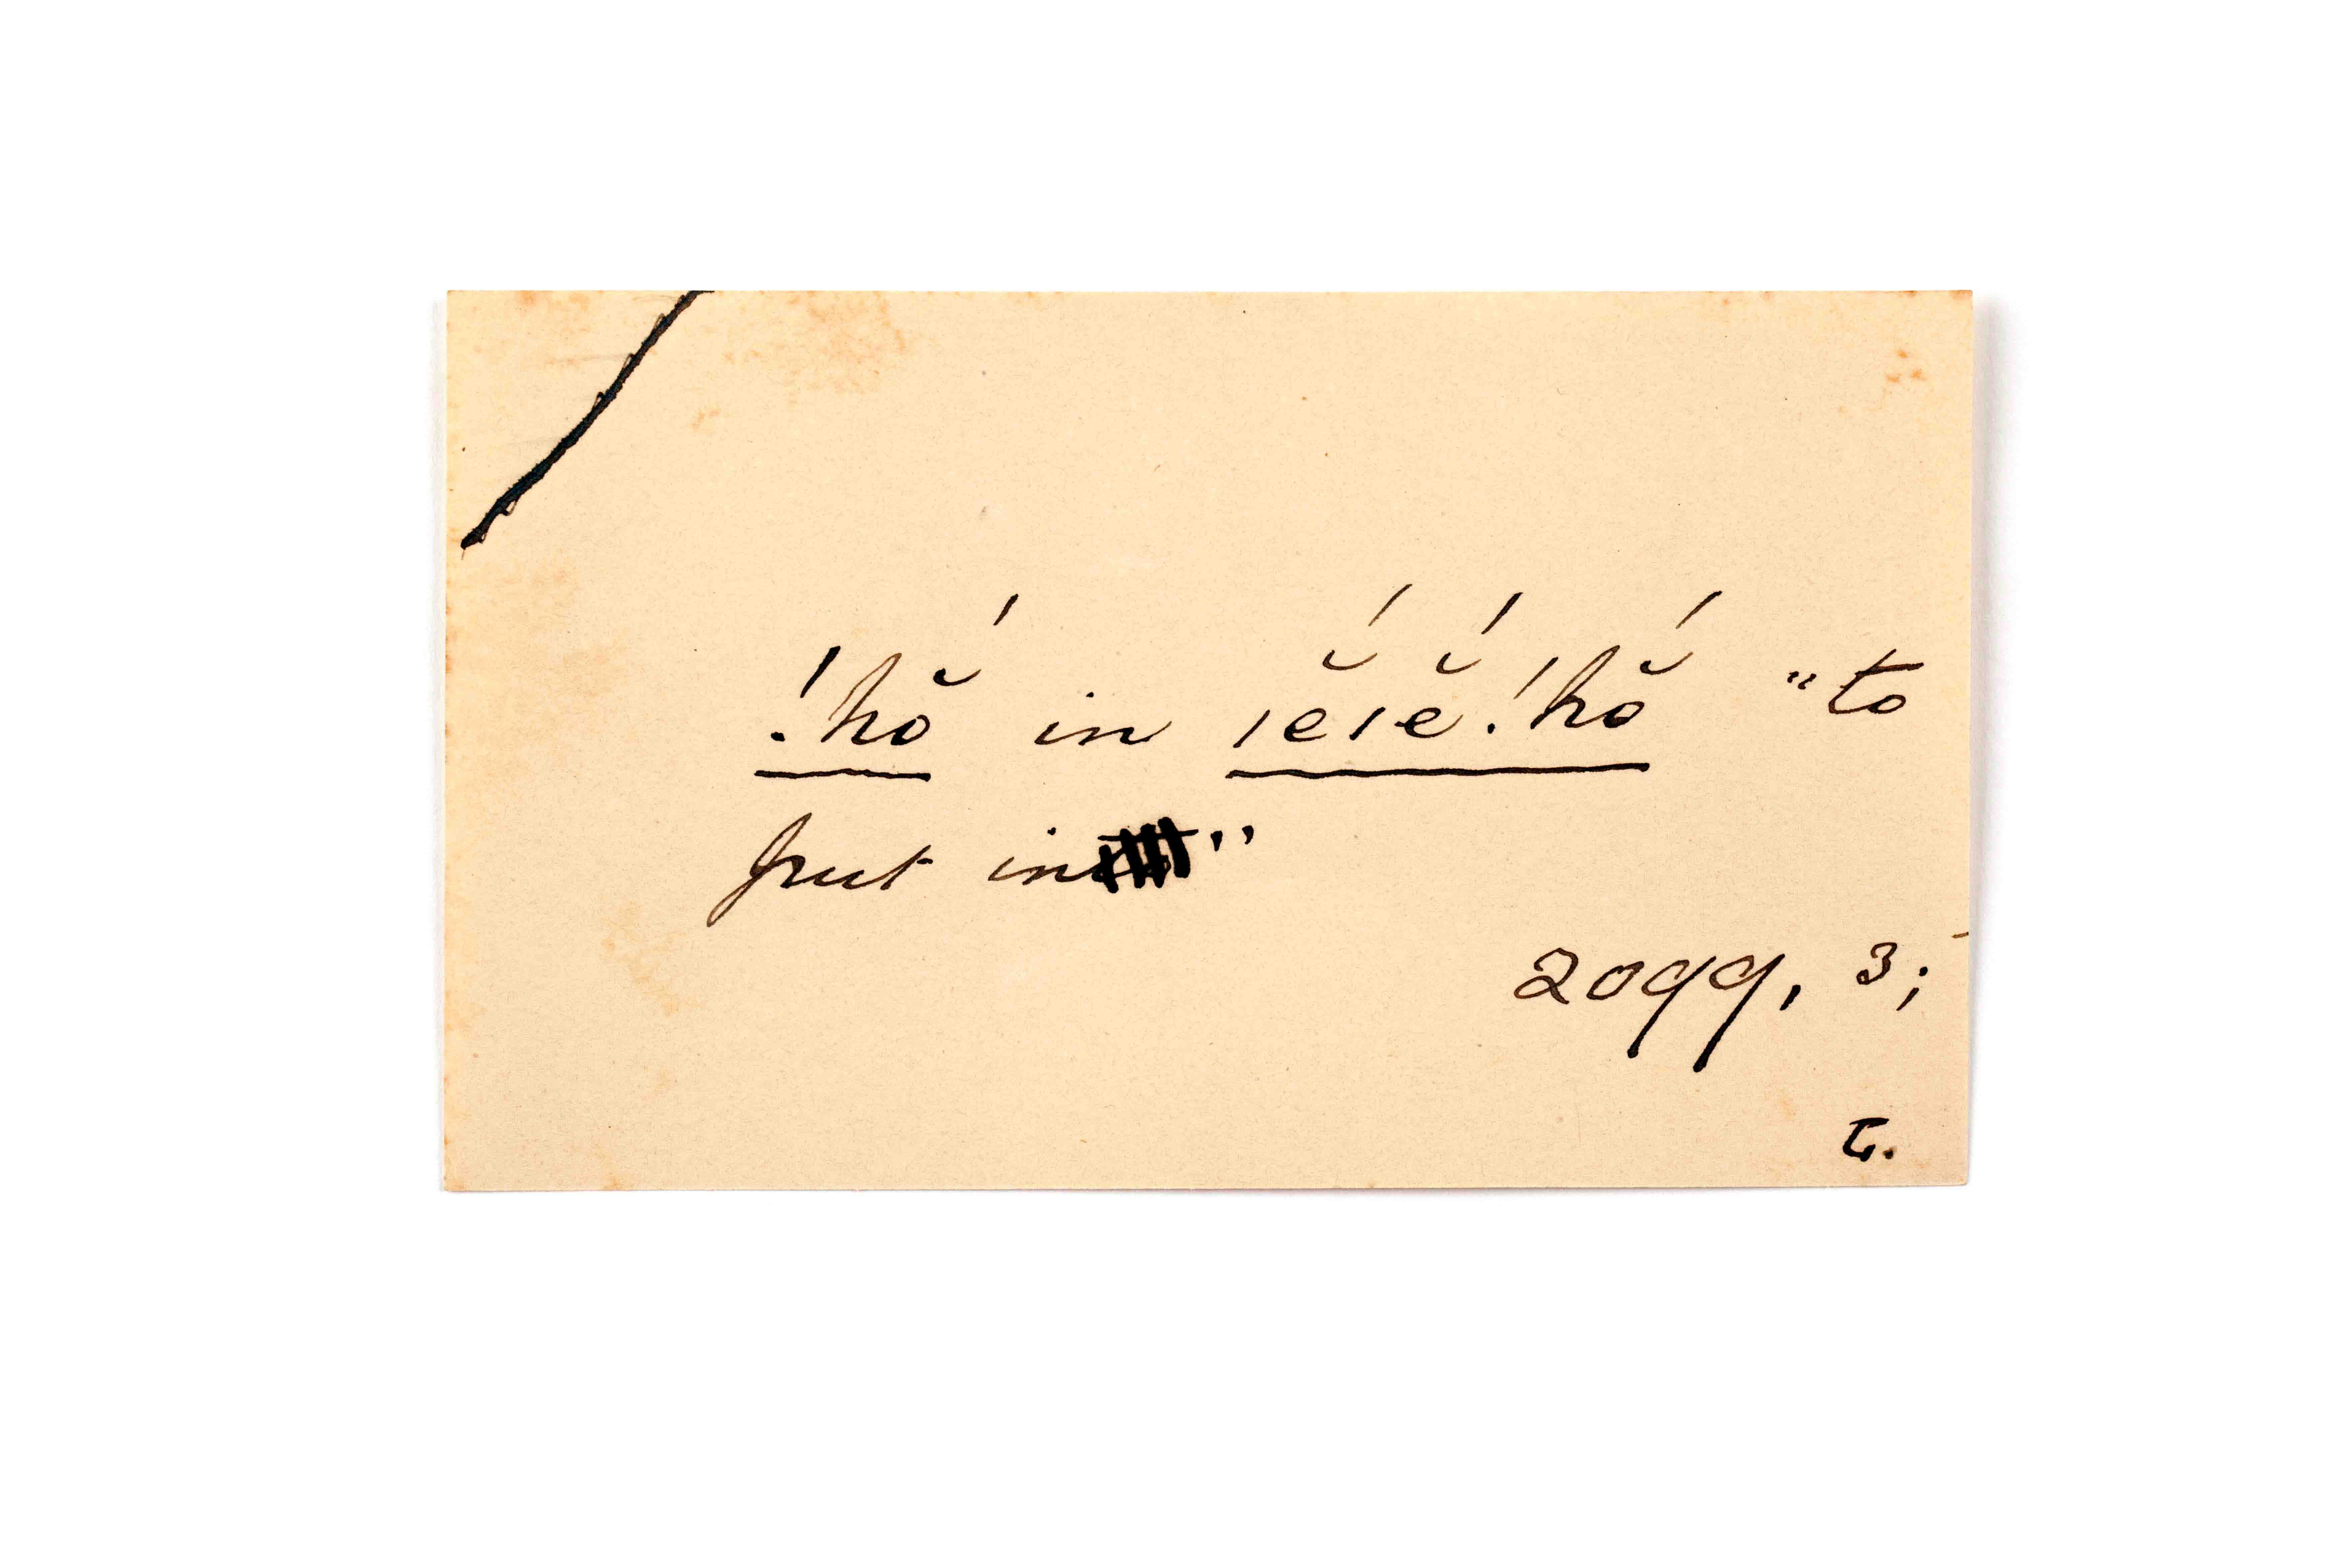 !hŏ́ in ıĕ́ıĕ́!hŏ́ "to
put in"
2099, 3;
τ.